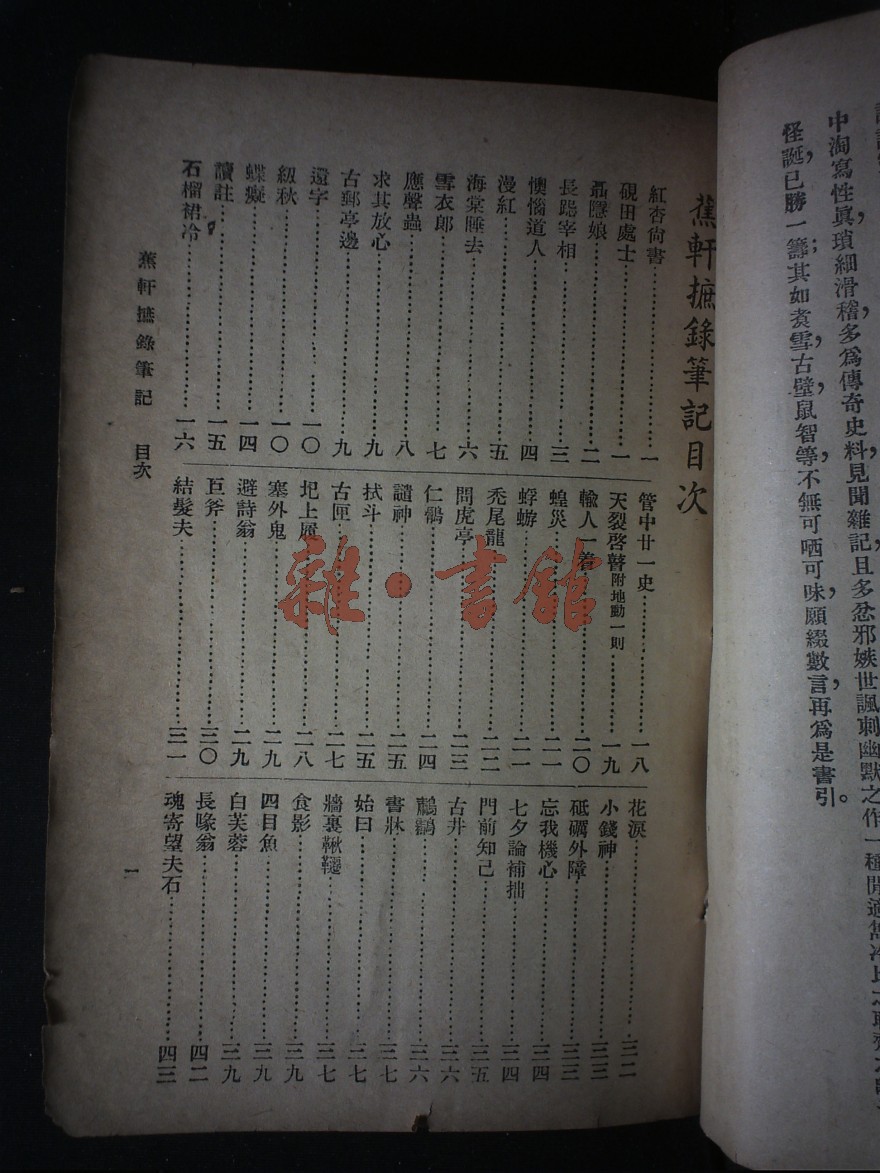 中淘寫性眞瑣細滑稽，多爲傳奇史料，見聞雜記，且多忿邪嫉世諷刺幽默之作一種閒適
怪誕，已勝一籌；其如煮雪古壁，鼠智等，不無可哂可味，願綴數言，再爲是書引。
蕉軒摭錄筆記目次
紅杏尙書……一
硯田處士……一
聶隱娘……二
長跽宰相……三
懊惱道人……四
漫紅……五
海棠睡去……六
雪衣郎……七
應聲蟲……八
求其放心……九
古郵亭邊……九
還字……一〇
紉秋……一〇
蝶癡……一四
讀註……一五
石榴裙冷……一六
管中廿一史……一八
天裂啓瞽附地動一則……一九
輸人一着……二〇
蝗災……二一
蜉蝣……二一
禿尾龍……二二
問虎亭……二三
仁鶻……二四
譴神……二五
拭斗……二五
古匣……二七
圯上……二八
塞外鬼……二九
避詩翁……二九
巨斧……三〇
結髮夫……三一
花淚……三二
小錢神……三三
砥礪外障……三三
忘我機心……三四
七夕論補拙……三四
門前知己……三五
古井……三六
鸕鶿……三六
書牀……三七
始曰……三七
牆裏鞦韆……三七
食影……三九
四目魚……三九
白芙蓉……三九
長喙翁……四二
魂寄望夫石……四三
蕉軒摭錄筆記　目次
一
雜·書館